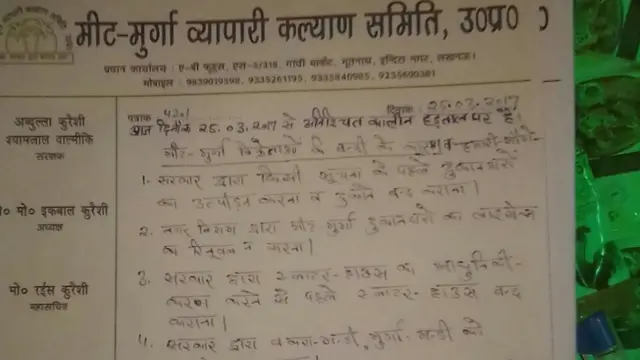 मीट-मुर्गा व्यापारी कल्याण समिति, उ०प्र०
प्रधान कार्यालय : ए-बी फूड्स, एस-3/318, गांधी मार्केट, भूतनाथ, इन्दिरा नगर, लखनऊ।
मोबाइल : 9839019598, 9335261195, 9335840985, 9235600381
पत्रांक 4201 दिनांक 25.03.2017
आज दिनांक 25.03.2017 से अनिश्चित कालीन हड़ताल पर है।
मीट-मुर्गा विक्रेताओं की बन्दी के
1. सरकार द्वारा किसी सूचना के पहले दुकानदारों
का उत्पीड़न करना व दुकाने बन्द कराना।
2. नगर निगम द्वारा मीट मुर्गा दुकानदारों का लाइसेन्स
का रिनुवल न करना।
3. सरकार द्वारा स्लाटर-हाउस का आधुनिकी-
करण करने से पहले स्लाटर-हाउस बन्द
कराना।
4. सरकार द्वारा बकरा-मन्डी, मुर्गा-मन्डी को
अब्दुल्ला कुरैशी
श्यामलाल वाल्मीकि
संरक्षक
मो० इकबाल कुरैशी
अध्यक्ष
मो० रईस कुरैशी
महासचिव